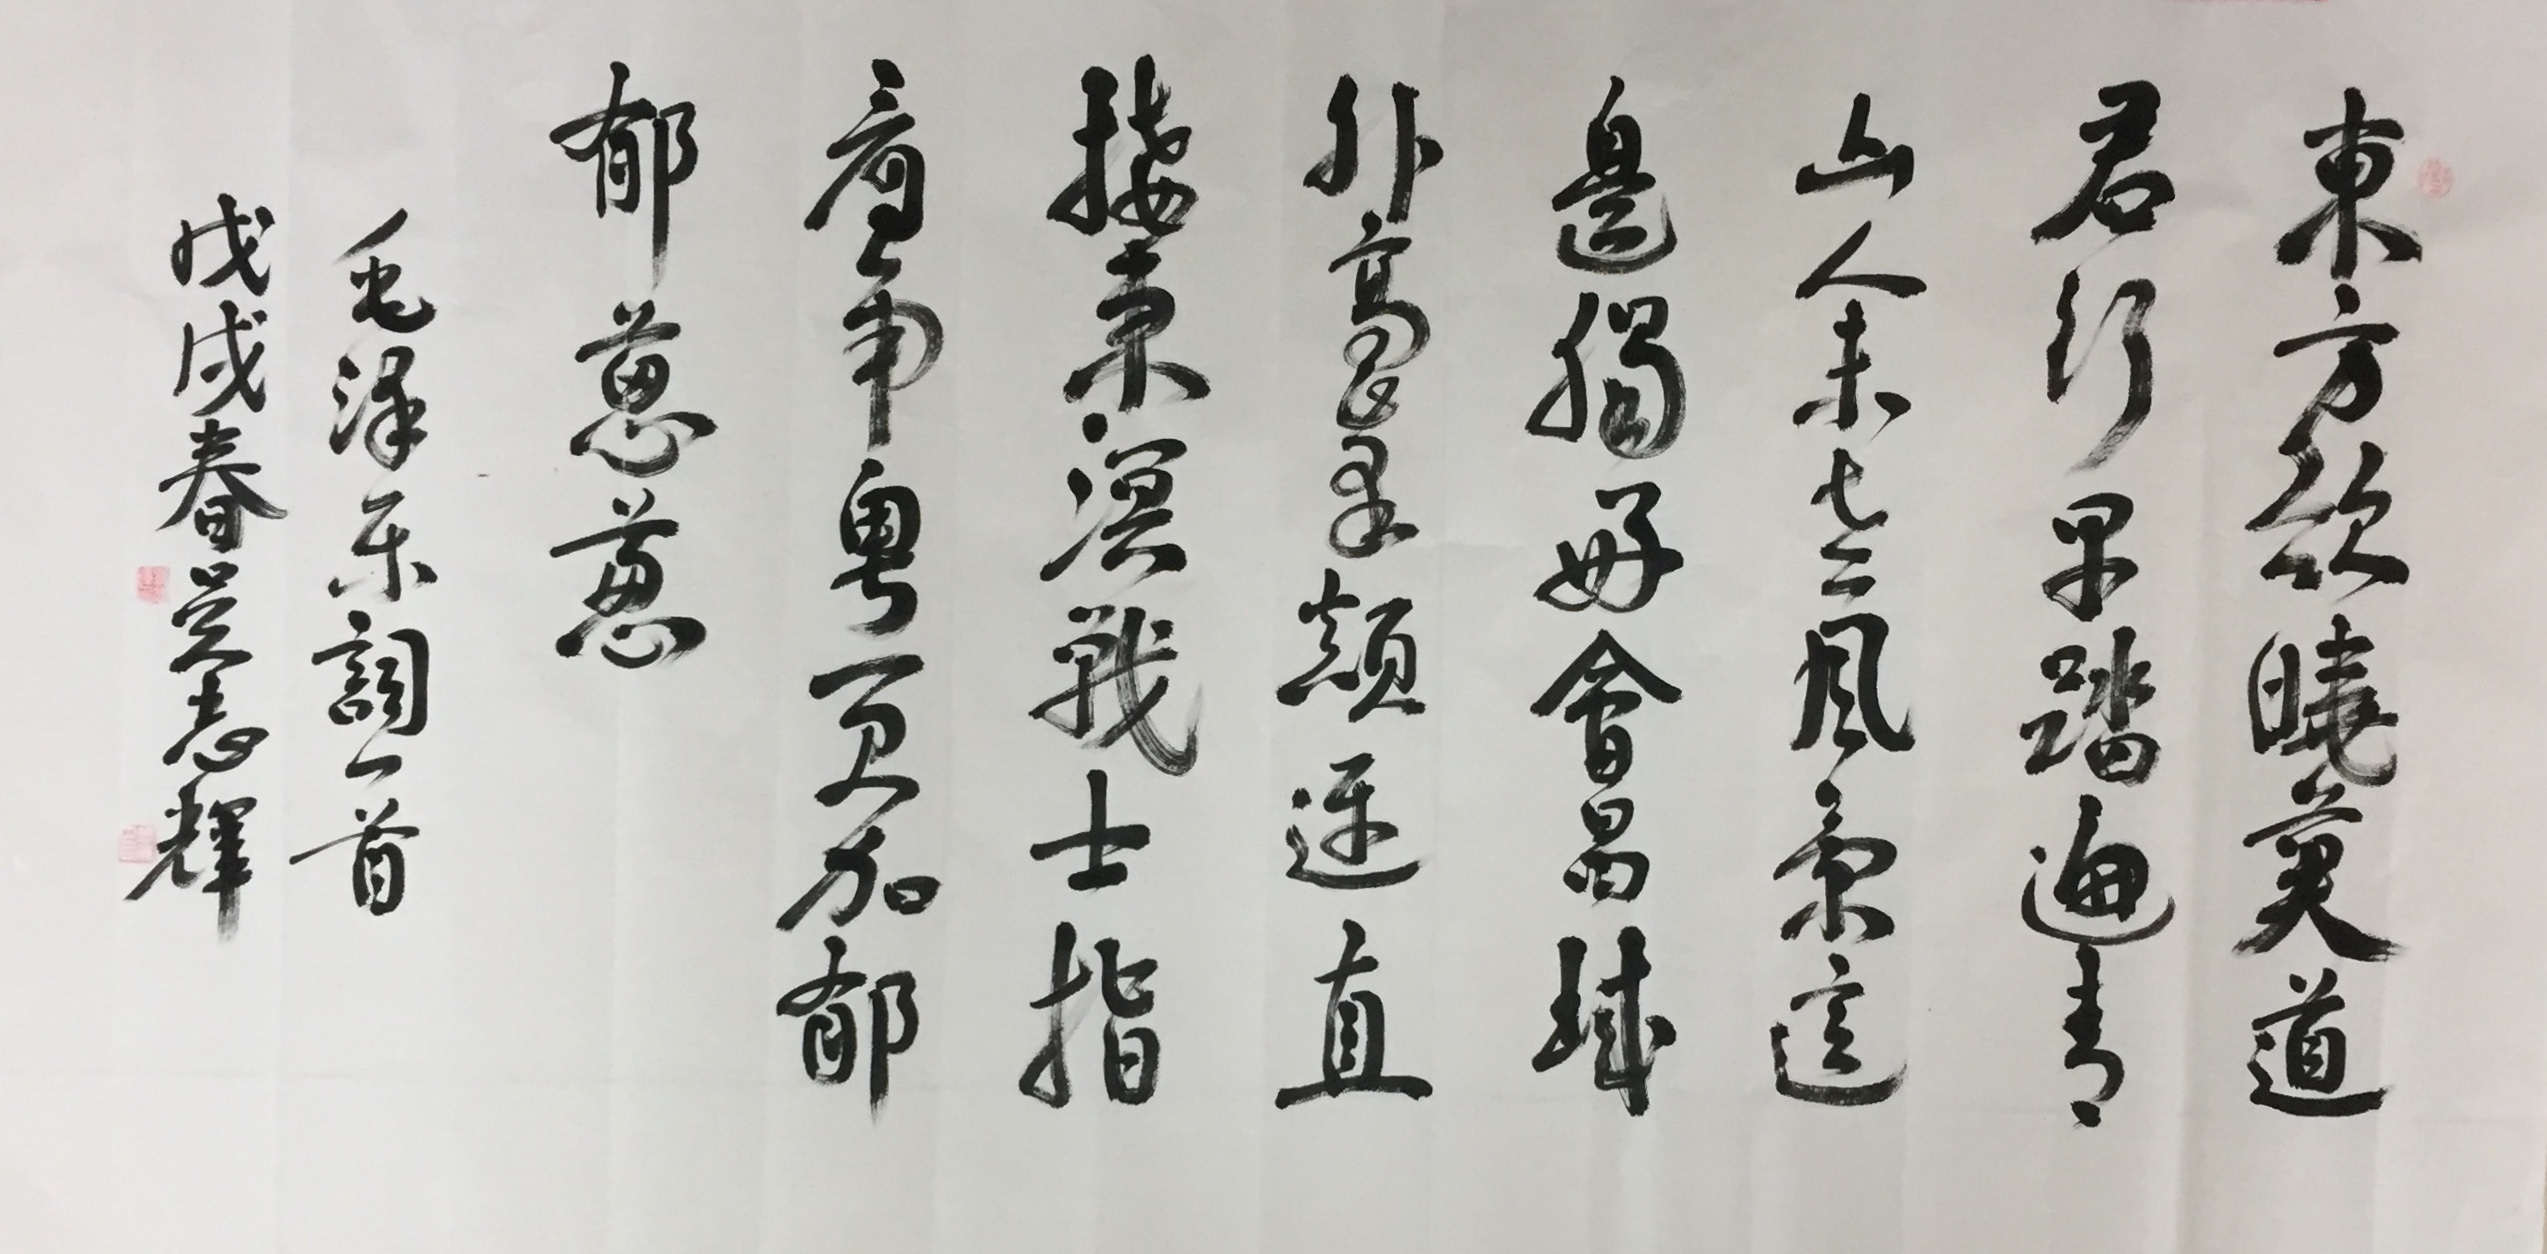 東方欲曉莫道
君行早踏遍青
山人未老風景這
邊獨好會昌城
外高峯顛連直
接東溟戰士指
看南粵更加郁
郁蔥蔥
毛泽东詞一首
戊戌春吴志輝